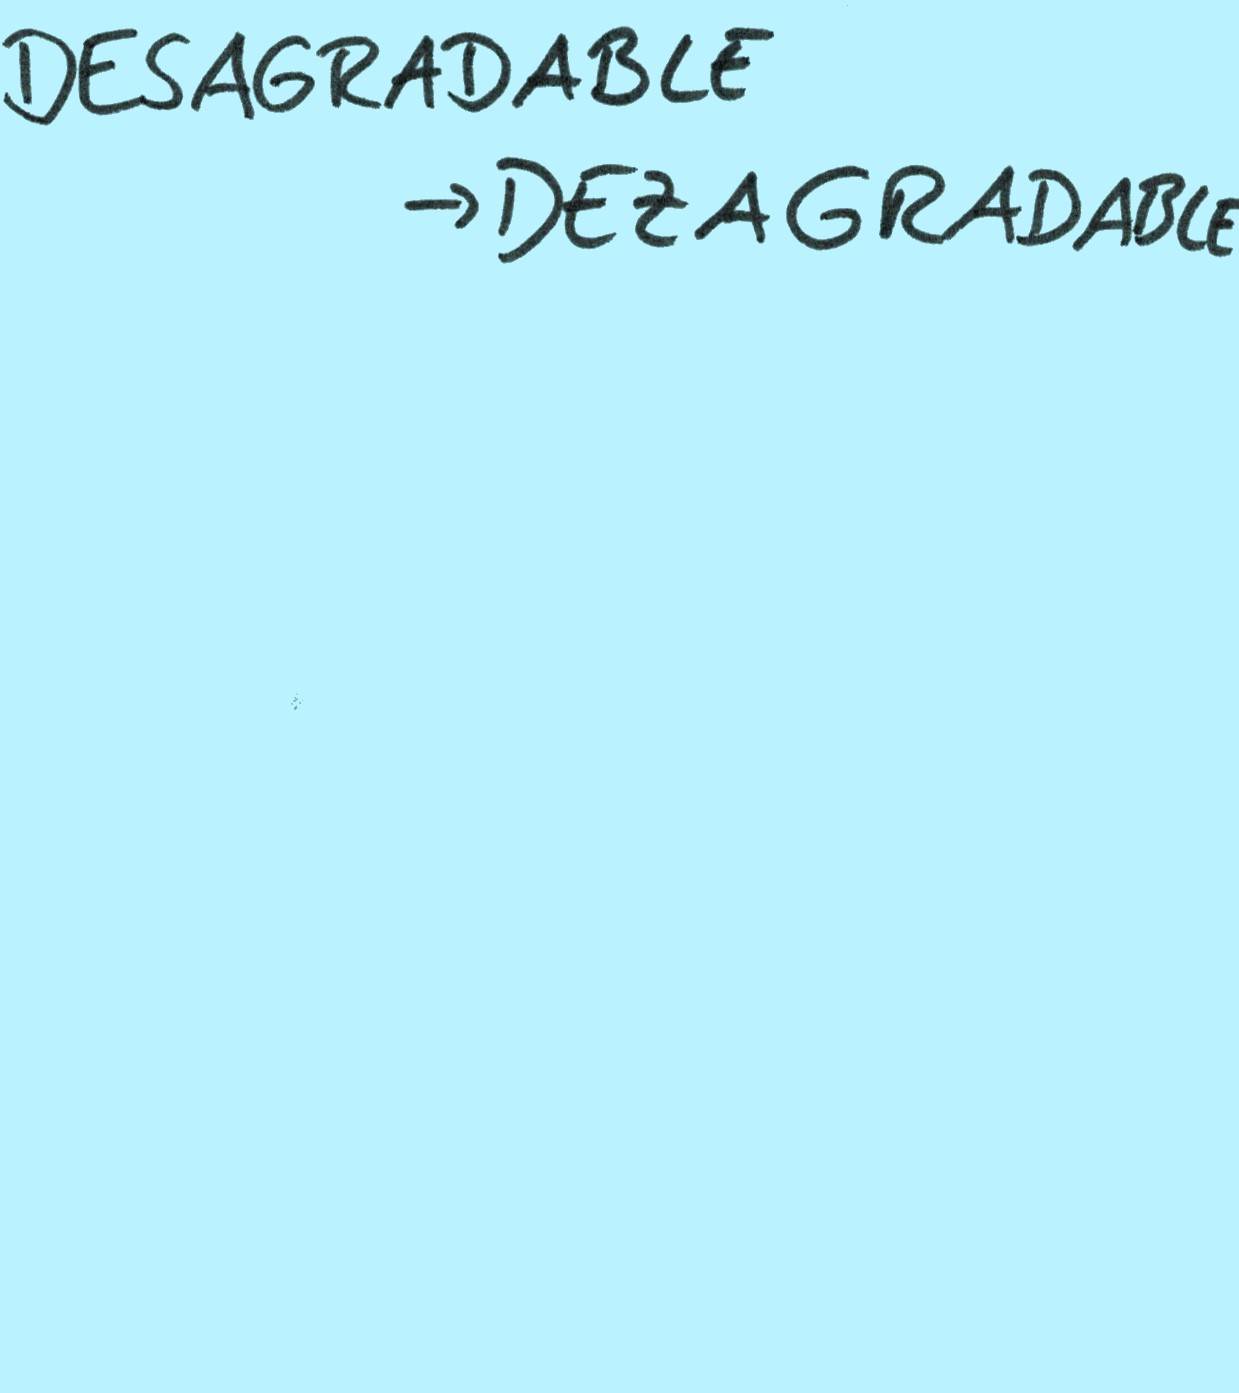 DESAGRADABLE
→ DEZAGRADABLE